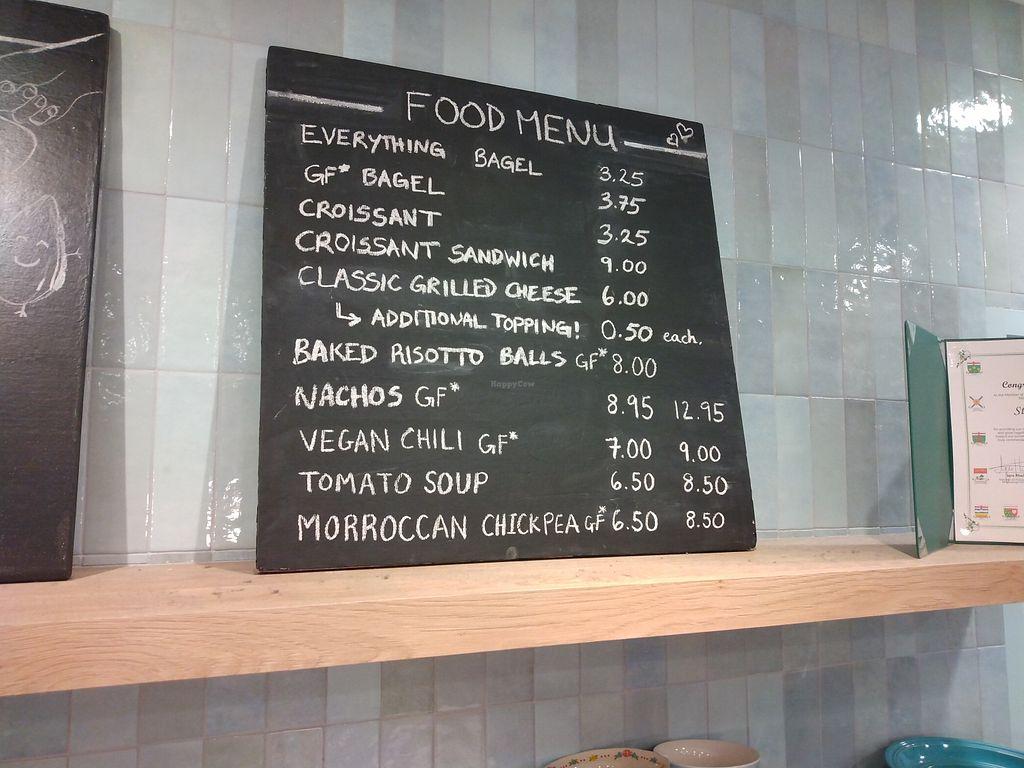 FOOD MENU
EVERYTHING BAGEL 3.25
GF* BAGEL 3.75
CROISSANT 3.25
CROISSANT SANDWICH 9.00
CLASSIC GRILLED CHEESE 6.00
↳ ADDITIONAL TOPPING! 0.50 each.
BAKED RISOTTO BALLS GF* 8.00
NACHOS GF* 8.95 12.95
VEGAN CHILI GF* 7.00 9.00
TOMATO SOUP 6.50 8.50
MORROCCAN CHICKPEA GF* 6.50 8.50
HappyCow
Cong